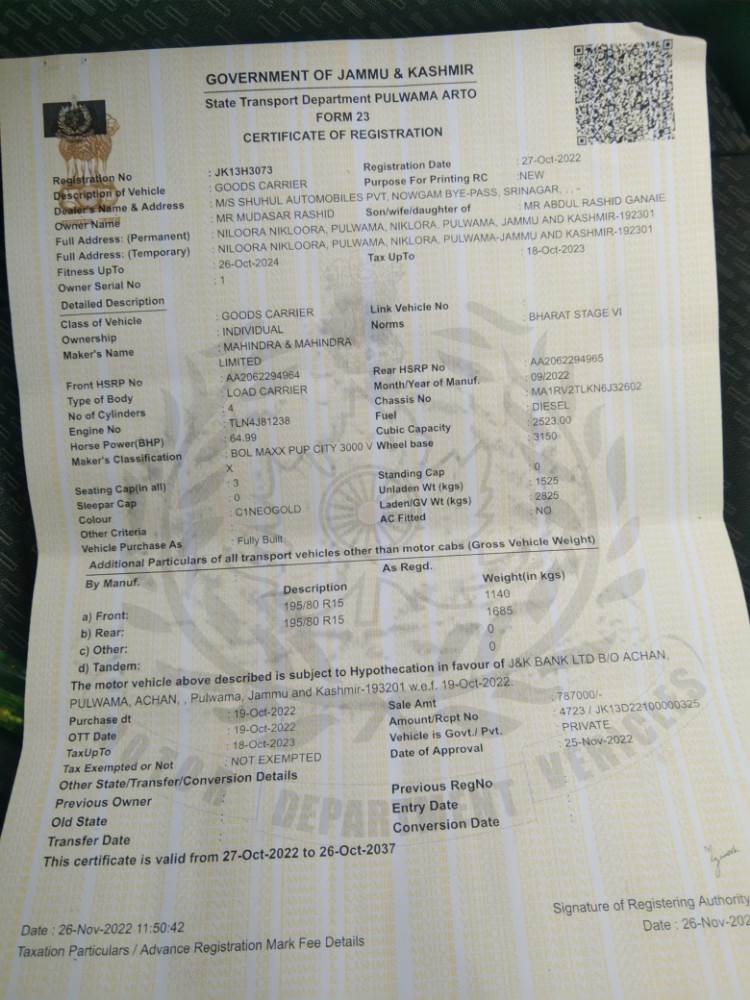 GOVERNMENT OF JAMMU & KASHMIR
State Transport Department PULWAMA ARTO
FORM 23
CERTIFICATE OF REGISTRATION
Registration No : JK13H3073 Registration Date : 27-Oct-2022
Description of Vehicle : GOODS CARRIER Purpose For Printing RC :NEW
Dealer's Name & Address : M/S SHUHUL AUTOMOBILES PVT, NOWGAM BYE-PASS, SRINAGAR, , , -
Owner Name : MR MUDASAR RASHID Son/wife/daughter of : MR ABDUL RASHID GANAIE
Full Address: (Permanent) : NILOORA NIKLOORA, PULWAMA, NIKLORA, PULWAMA, JAMMU AND KASHMIR-192301
Full Address: (Temporary) : NILOORA NIKLOORA, PULWAMA, NIKLORA, PULWAMA-JAMMU AND KASHMIR-192301
Fitness UpTo : 26-Oct-2024 Tax UpTo : 18-Oct-2023
Owner Serial No : 1
Detailed Description
Class of Vehicle : GOODS CARRIER Link Vehicle No :
Ownership : INDIVIDUAL Norms : BHARAT STAGE VI
Maker's Name : MAHINDRA & MAHINDRA
LIMITED
Front HSRP No : AA2062294964 Rear HSRP No : AA2062294965
Type of Body : LOAD CARRIER Month/Year of Manuf. : 09/2022
No of Cylinders : 4 Chassis No : MA1RV2TLKN6J32602
Engine No : TLN4J81238 Fuel : DIESEL
Horse Power(BHP) : 64.99 Cubic Capacity : 2523.00
Maker's Classification : BOL MAXX PUP CITY 3000 V Wheel base : 3150
X
Seating Cap(in all) : 3 Standing Cap : 0
Sleepar Cap : 0 Unladen Wt (kgs) : 1525
Colour : C1NEOGOLD Laden/GV Wt (kgs) : 2825
Other Criteria : AC Fitted : NO
Vehicle Purchase As : Fully Built
Additional Particulars of all transport vehicles other than motor cabs (Gross Vehicle Weight)
By Manuf. As Regd.
Description Weight(in kgs)
a) Front: 195/80 R15 1140
b) Rear: 195/80 R15 1685
c) Other: 0
d) Tandem: 0
The motor vehicle above described is subject to Hypothecation in favour of J&K BANK LTD B/O ACHAN,
PULWAMA, ACHAN, , Pulwama, Jammu and Kashmir-193201 w.e.f. 19-Oct-2022.
Purchase dt : 19-Oct-2022 Sale Amt : 787000/-
OTT Date : 19-Oct-2022 Amount/Rcpt No : 4723 / JK13D22100000325
TaxUpTo : 18-Oct-2023 Vehicle is Govt./ Pvt. : PRIVATE
Tax Exempted or Not : NOT EXEMPTED Date of Approval : 25-Nov-2022
Other State/Transfer/Conversion Details
Previous Owner : Previous RegNo :
Old State : Entry Date :
Transfer Date : Conversion Date :
This certificate is valid from 27-Oct-2022 to 26-Oct-2037
Signature of Registering Authority
Date : 26-Nov-2022 11:50:42 Date : 26-Nov-202
Taxation Particulars / Advance Registration Mark Fee Details
MOTOR VEHICLES DEPARTMENT